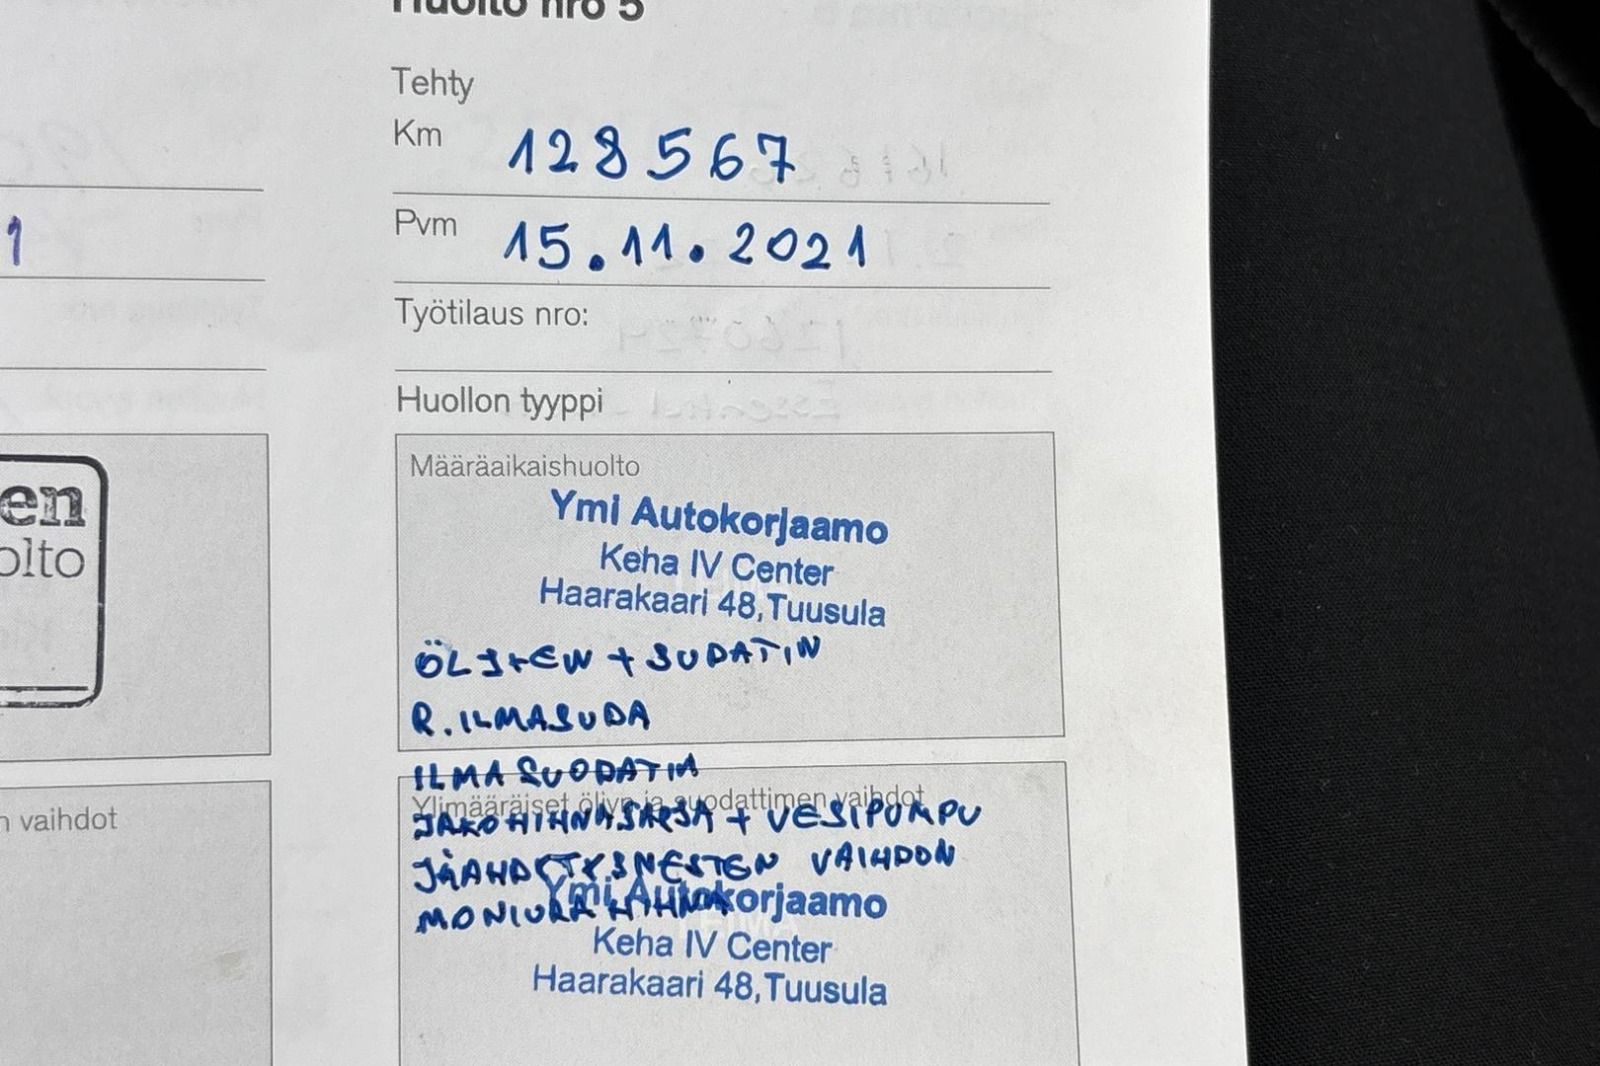 Huolto nro 5
Tehty
Km 128567
Pvm 15.11.2021
Työtilaus nro:
Huollon tyyppi
Määräaikaishuolto
Ymi Autokorjaamo
Keha IV Center
Haarakaari 48,Tuusula
+ SUDATIN
R.ILMASUDA
ILMASUODATIN
Ylimääräiset öljyn ja suodattimen vaihdot
JAKOHIHNASARJA + VESIPUMPU
VAIHDON
MONIURA HIHNA
Ymi Autokorjaamo
Keha IV Center
Haarakaari 48,Tuusula
1
en
olto
n vaihdot